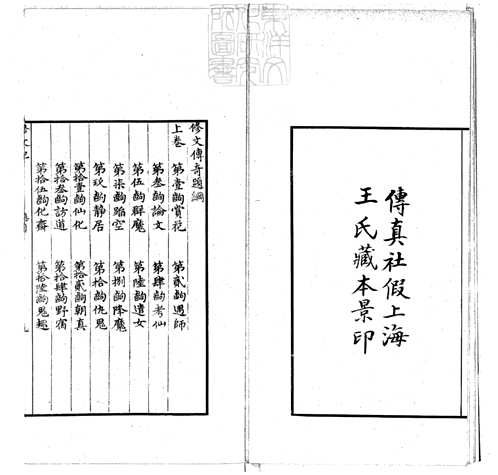 傳真社假上海
王氏藏本景印
東洋文
化研究
所圖書
修文傳奇題綱
上卷 第壹齣賞花 第貳齣遇師
第叁齣論文 第肆齣考仙
第伍齣群魔 第陸齣遣女
第柒齣蹈空 第捌齣降魔
第玖齣静居 第拾齣仇鬼
第拾壹齣仙化 第拾貳齣朝真
第拾叁齣訪道 第拾肆齣野宿
第拾伍齣化齋 第拾陸齣鬼趣